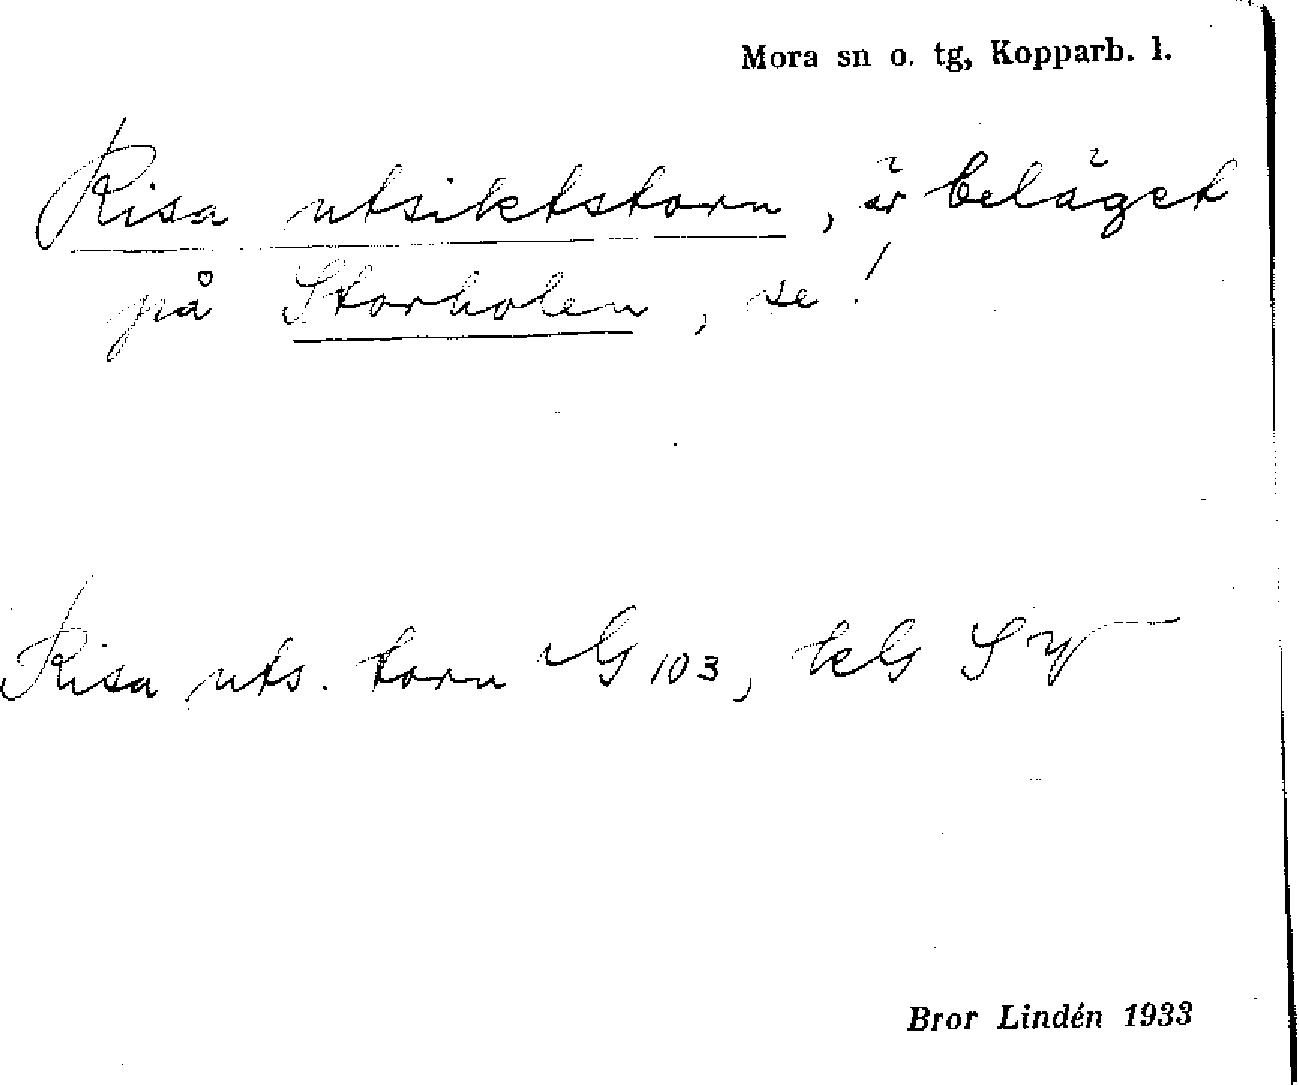 Mora sn o. tg, Kopparb. l.
Risa utsiktstorn, är beläget
på Storholen, se!
Risa uts. torn G 103, kG SV
Bror Lindén 1933